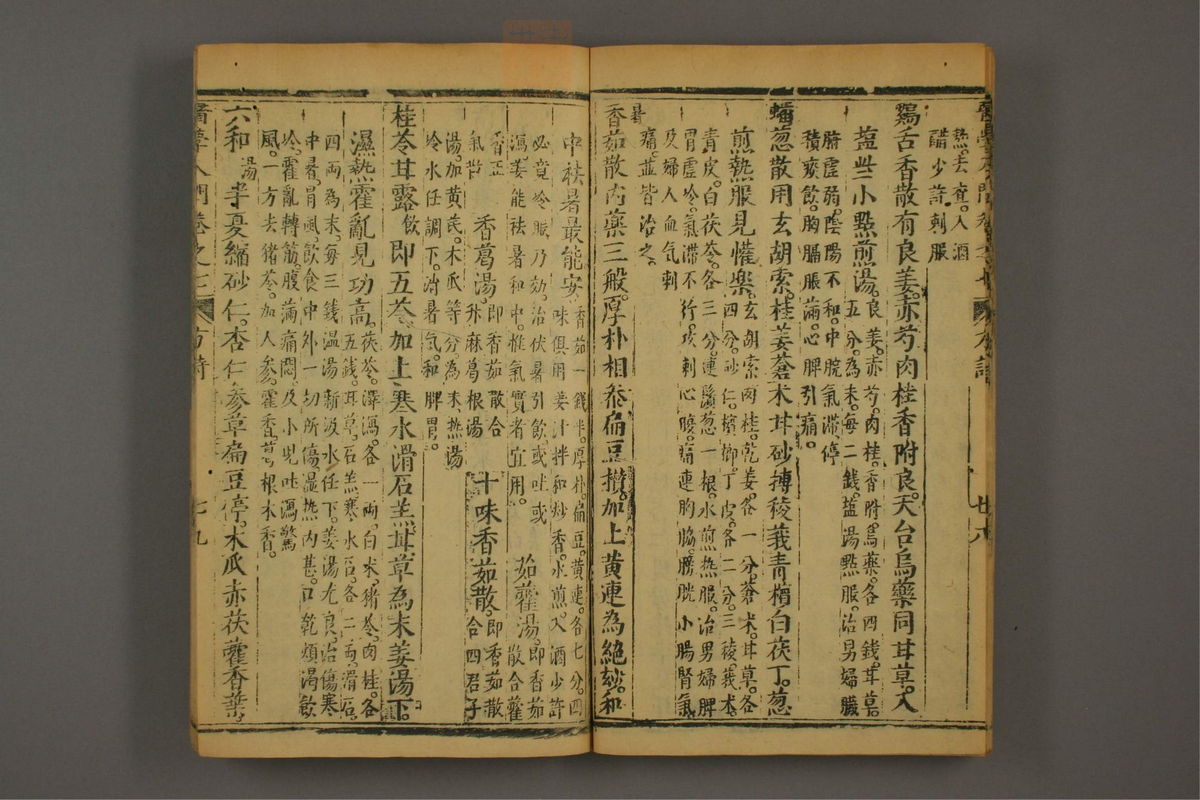 熱去查入酒
醋少許刺服
鷄舌香散有良姜赤芍肉桂香附良天台烏藥同甘草入
塩些小點煎湯良姜赤芍肉桂香附烏藥各四錢甘草
五分為末每二錢塩湯點服治男婦臟
腑虛弱陰陽不和中脘氣滯停
積痰飲胸膈脹滿心脾引痛
蟠葱散用玄胡索桂姜蒼朮甘砂摶稜莪青檳白茯丁葱
煎熱服見懽樂玄胡索肉桂乾姜各一分蒼朮甘草各
四分砂仁檳榔丁皮各二分三稜莪朮
青皮白茯苓各三分連鬚葱一根水煎熱服治男婦脾
胃虛冷氣滯不行攻刺心腹痛連胸脇膀胱小腸腎氣
及婦人血氣刺
痛並皆治之
暑
香茹散內藥三般厚朴相叅扁豆攢加上黃連為絕玅和
中袪暑最能安香茹一錢半厚朴扁豆黃連各七分四
味俱用姜汁拌和炒香水煎入酒少許
必竟冷服乃効治伏暑引飲或吐或
瀉姜能袪暑和中惟氣實者宜用
茹藿湯即香茹
散合藿
香正
氣散
香葛湯即香茹散合
升麻葛根湯
十味香茹散即香茹散
合四君子
湯加黃芪木瓜等分為末熱湯
冷水任調下消暑氣和脾胃
桂苓甘露飲即五苓加上寒水滑石羔甘草為末姜湯下
濕熱霍亂見功高茯苓澤瀉各一兩白朮猪苓肉桂各
五錢甘草石羔寒水石各二兩滑石
四兩為末每三錢溫湯新汲水任下姜湯尤良治傷寒
中暑冐風飲食中外一切所傷濕熱內甚口乾煩渴飲
冷霍亂轉筋腹滿痛悶及小兒吐瀉驚
風一方去猪苓加人參藿香葛根木香
六和湯半夏縮砂仁杏仁參草扁豆停木瓜赤茯藿香葉
醫學入門卷之七
方詩
七九